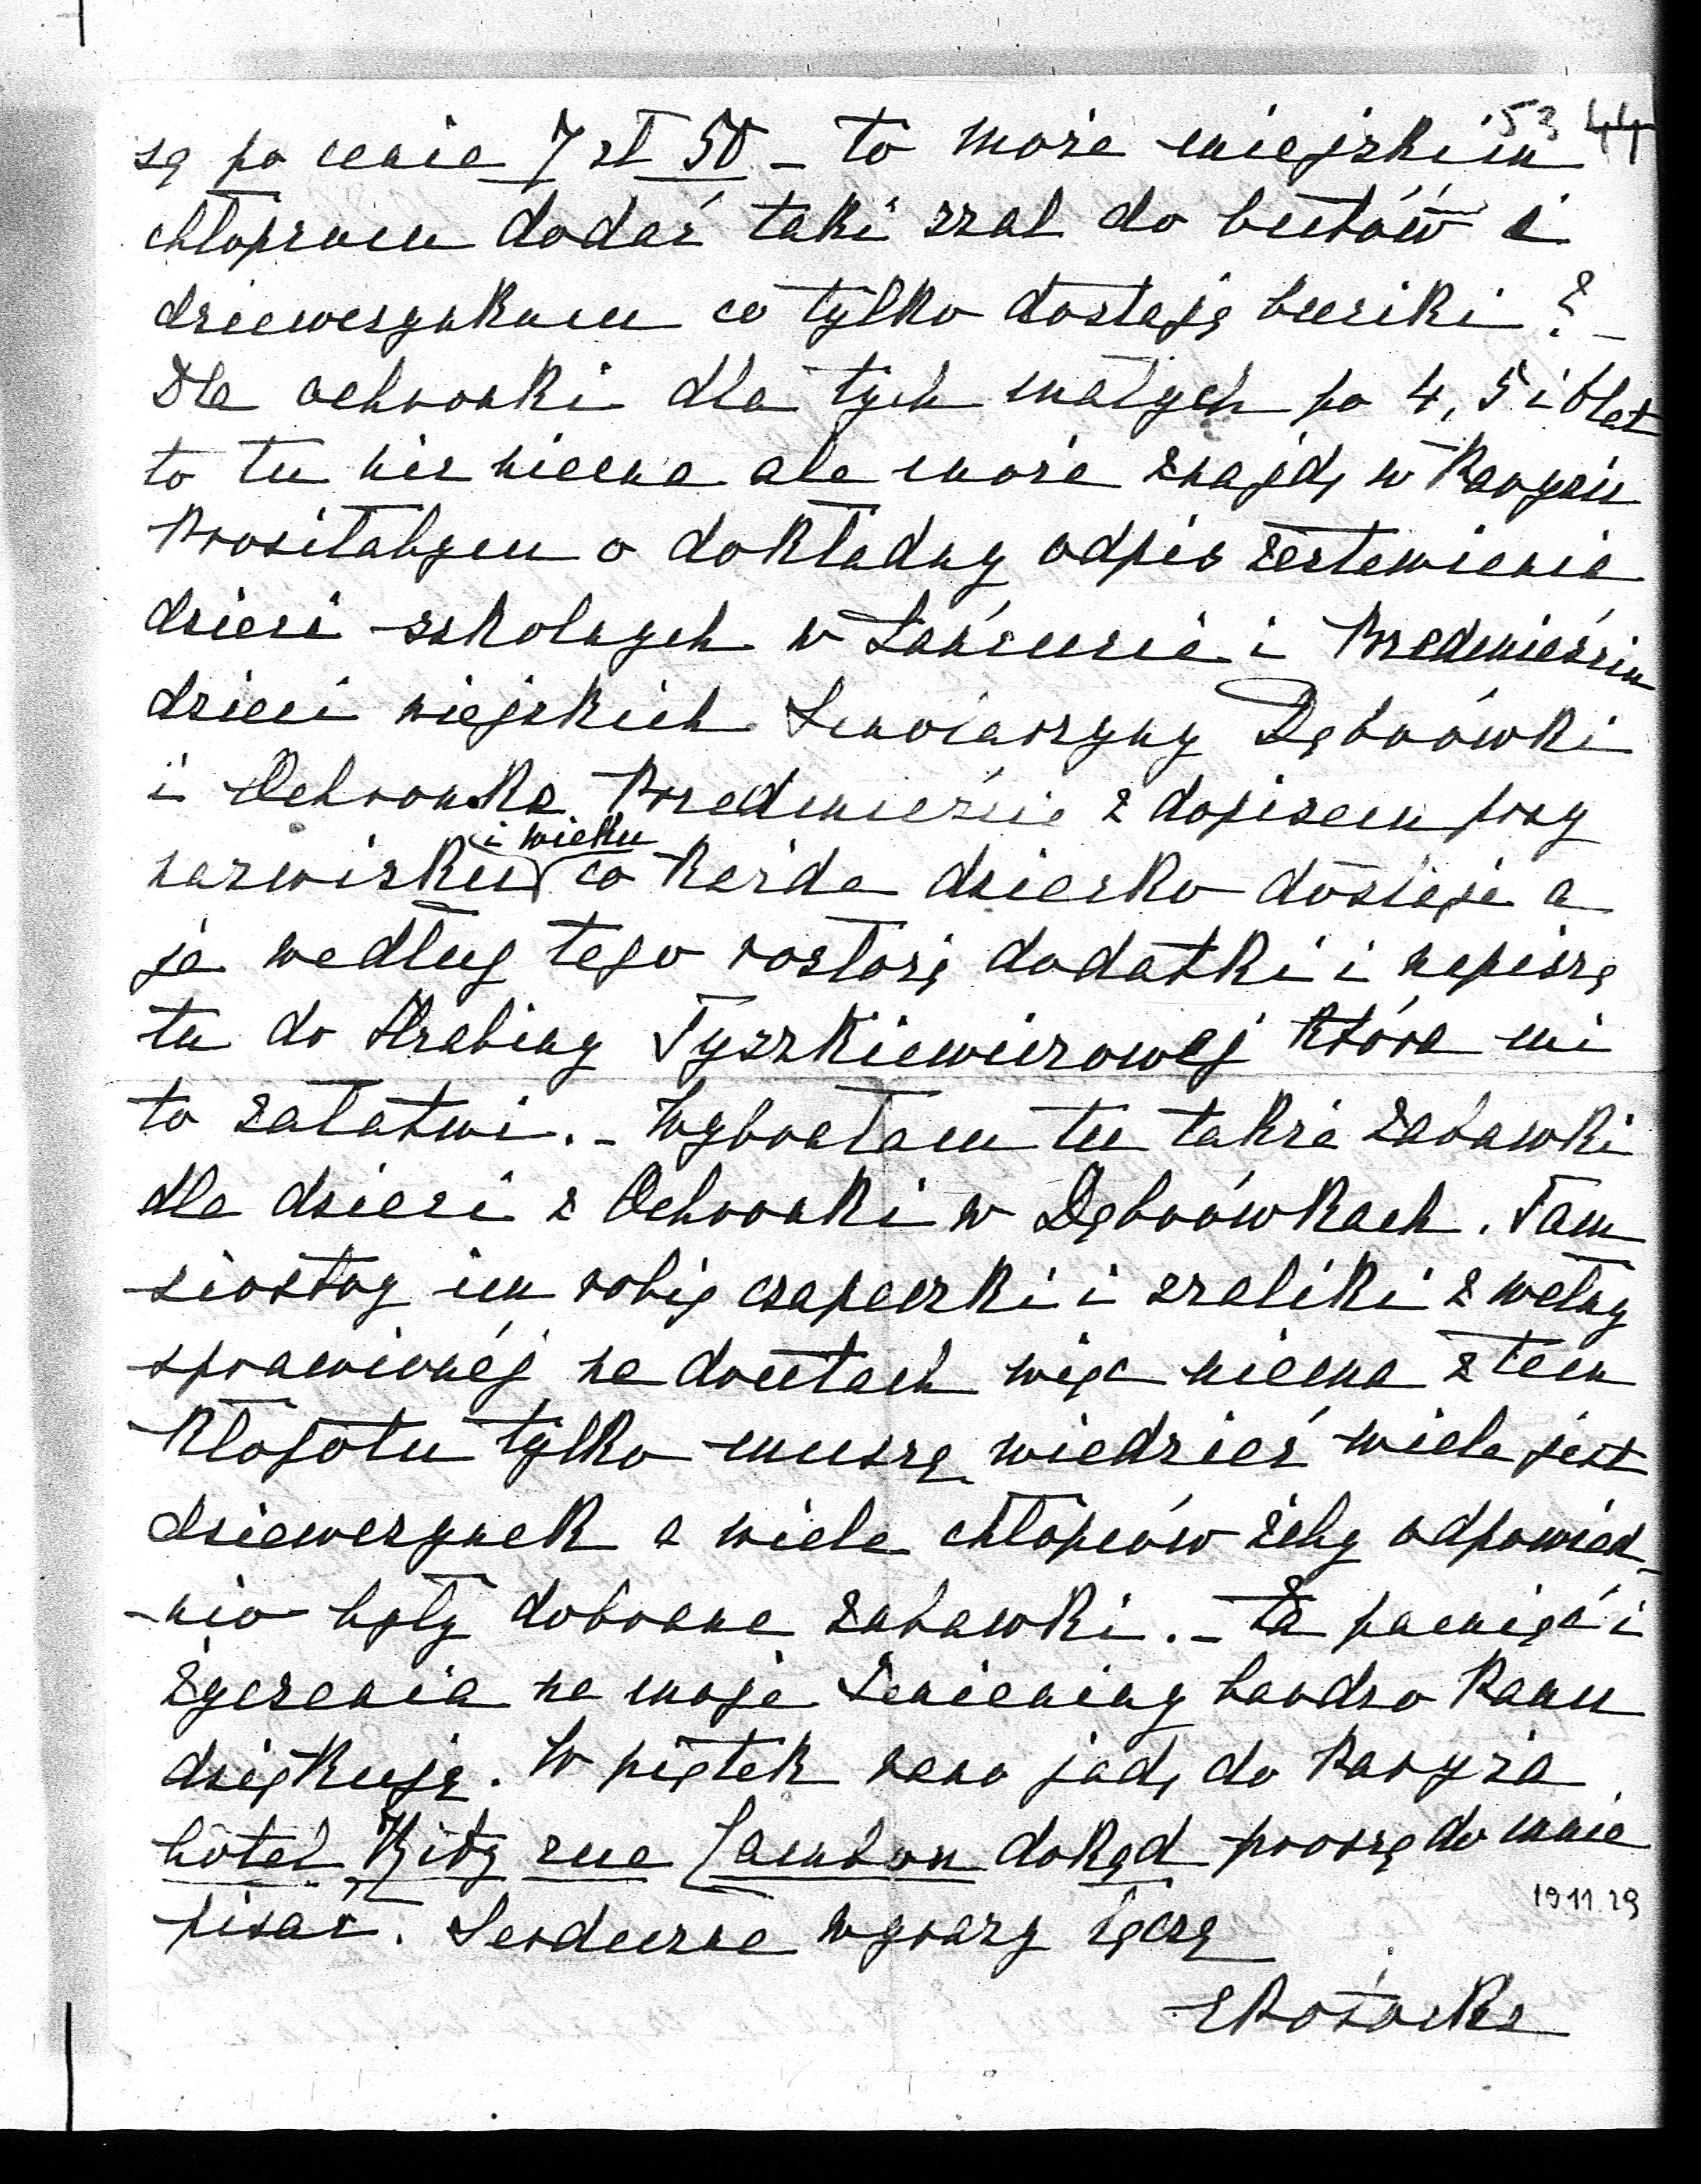 53 44
są po cenie 7 zł 50 – to może miejskim
chłopcom dodać taki szal do butów i
dziewczynkom co tylko dostają buciki ? –
Dla ochronki dla tych małych po 4, 5 i 6 lat
to tu nic niema ale może znajdę w Paryżu
Prosiłabym o dokładny odpis zestawienia
dzieci szkolnych w Łańcucie i Przedmieściu
dzieci wiejskich Smolarzyny Dąbrówki
i Ochronka Przedmieście z dopisem przy
nazwisku i wieku co każde dziecko dostaje a
ja według tego rozłożę dodatki i napiszę
tu do Hrabiny Tyszkiewiczowej która mi
to załatwi. – Wybrałam tu także zabawki
dla dzieci z Ochronki w Dąbrówkach. Tam
siostry im robią czapeczki i szaliki z wełny
sprawionej na drutach więc niema z tem
kłopotu tylko muszę wiedzieć wiele jest
dziewczynek a wiele chłopców żeby odpowied-
-nio były dobrane zabawki. – Za pamięć i
życzenia na moje Imieniny bardzo Panu
dziękuję. W piątek rano jadę do Paryża
hôtel Ritz rue Cambon dokąd proszę do mnie
pisać. Serdeczne wyrazy łączę
19 11. 29
EPotocka